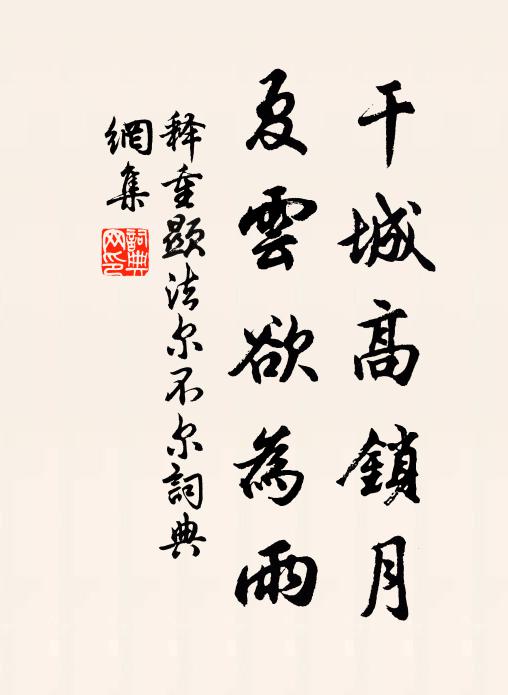 千城高鎖月
夏雲欲為雨
释重顯法尔不尔詞典
網集
詞典
网印